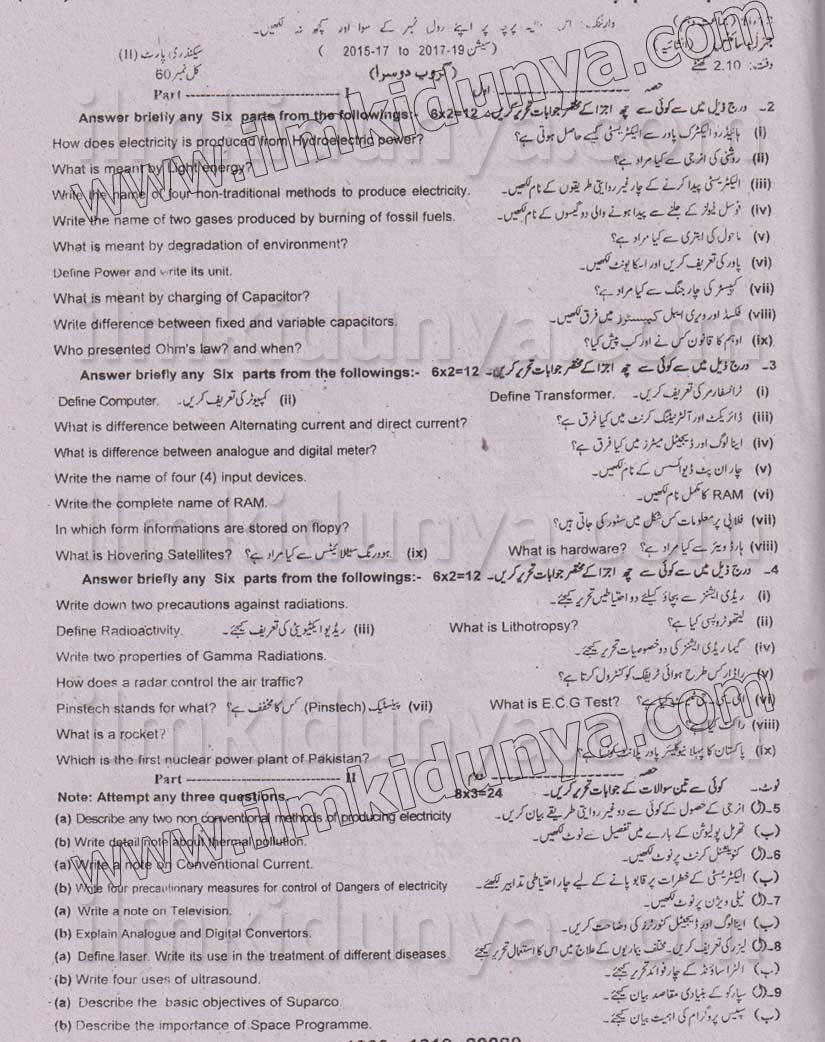 وارننگ: اس سوالیہ پرچہ پر اپنے رول نمبر کے سوا اور کچھ نہ لکھیں۔
جنرل سائنس (انشائیہ) (سیشن 2015-17 to 2017-19) سیکنڈری پارٹ (II)
وقت: 2.10 گھنٹے (گروپ دوسرا) کل نمبر 60
Part I حصہ اول
Answer briefly any Six parts from the followings:- 6x2=12 2- درج ذیل میں سے کوئی سے چھ اجزا کے مختصر جوابات تحریر کریں۔
How does electricity is produced from Hydroelectric power? (i) ہائیڈرو الیکٹرک پاور سے الیکٹریسٹی کیسے حاصل ہوتی ہے؟
What is meant by Light energy? (ii) روشنی کی انرجی سے کیا مراد ہے؟
Write the name of four non-traditional methods to produce electricity. (iii) الیکٹریسٹی پیدا کرنے کے چار غیر روایتی طریقوں کے نام لکھیں۔
Write the name of two gases produced by burning of fossil fuels. (iv) فوسل فیولز کے جلنے سے پیدا ہونے والی دو گیسوں کے نام لکھیں۔
What is meant by degradation of environment? (v) ماحول کی ابتری سے کیا مراد ہے؟
Define Power and write its unit. (vi) پاور کی تعریف کریں اور اسکا یونٹ لکھیں۔
What is meant by charging of Capacitor? (vii) کپیسٹر کی چارجنگ سے کیا مراد ہے؟
Write difference between fixed and variable capacitors. (viii) فکسڈ اور ویری ایبل کپیسٹرز میں فرق لکھیں۔
Who presented Ohm's law? and when? (ix) اوہم کا قانون کس نے اور کب پیش کیا؟
Answer briefly any Six parts from the followings:- 6x2=12 3- درج ذیل میں سے کوئی سے چھ اجزا کے مختصر جوابات تحریر کریں۔
Define Computer. (ii) کمپیوٹر کی تعریف کریں۔ Define Transformer. (i) ٹرانسفارمر کی تعریف کریں۔
What is difference between Alternating current and direct current? (iii) ڈائریکٹ اور آلٹرنیٹنگ کرنٹ میں کیا فرق ہے؟
What is difference between analogue and digital meter? (iv) اینالوگ اور ڈیجیٹل میٹرز میں کیا فرق ہے؟
Write the name of four (4) input devices. (v) چار ان پٹ ڈیوائسس کے نام لکھیں۔
Write the complete name of RAM. (vi) RAM کا مکمل نام لکھیں۔
In which form informations are stored on flopy? (vii) فلاپی پر معلومات کس شکل میں سٹور کی جاتی ہیں؟
What is Hovering Satellites? (ix) ہوورنگ سٹلائیٹس سے کیا مراد ہے؟ What is hardware? (viii) ہارڈ ویئر سے کیا مراد ہے؟
Answer briefly any Six parts from the followings:- 6x2=12 4- درج ذیل میں سے کوئی سے چھ اجزا کے مختصر جوابات تحریر کریں۔
Write down two precautions against radiations. (i) ریڈی ایشنز سے بچاؤ کیلئے دو احتیاطیں تحریر کیجئے۔
Define Radioactivity. (iii) ریڈیو ایکٹیویٹی کی تعریف کیجئے۔ What is Lithotropsy? (ii) لیتھوٹروپسی کیا ہے؟
Write two properties of Gamma Radiations. (iv) گیما ریڈی ایشنز کی دو خصوصیات تحریر کیجئے۔
How does a radar control the air traffic? (v) راڈار کس طرح ہوائی ٹریفک کو کنٹرول کرتا ہے؟
Pinstech stands for what? (vii) پینسٹیک (Pinstech) کس کا مخفف ہے؟ What is E.C.G Test? (vi) ای۔سی۔جی ٹیسٹ کیا ہے؟
What is a rocket? (viii) راکٹ کیا ہے؟
Which is the first nuclear power plant of Pakistan? (ix) پاکستان کا پہلا نیوکلیئر پاور پلانٹ کونسا ہے؟
Part II حصہ دوم
Note: Attempt any three questions. 8x3=24 نوٹ۔ کوئی سے تین سوالات کے جوابات تحریر کریں۔
(a) Describe any two non conventional methods of producing electricity 5-(ا) انرجی کے حصول کے کوئی سے دو غیر روایتی طریقے بیان کریں۔
(b) Write detail note about thermal pollution. (ب) تھرمل پولیوشن کے بارے میں تفصیل سے نوٹ لکھیں۔
(a) Write a note on Conventional Current. 6-(ا) کنونشنل کرنٹ پر نوٹ لکھیں۔
(b) Wote four precautionary measures for control of Dangers of electricity (ب) الیکٹریسٹی کے خطرات پر قابو پانے کے لیے چار احتیاطی تدابیر لکھیئے۔
(a) Write a note on Television. 7-(ا) ٹیلی ویژن پر نوٹ لکھیں۔
(b) Explain Analogue and Digital Convertors. (ب) اینالوگ اور ڈیجیٹل کنورٹرز کی وضاحت کریں۔
(a) Define laser. Write its use in the treatment of different diseases. 8-(ا) لیزر کی تعریف کریں۔ مختلف بیماریوں کے علاج میں اس کا استعمال تحریر کیجئے
(b) Write four uses of ultrasound. (ب) الٹرا ساؤنڈ کے چار فوائد تحریر کیجئے۔
(a) Describe the basic objectives of Suparco. 9-(ا) سپارکو کے بنیادی مقاصد بیان کیجئے۔
(b) Describe the importance of Space Programme. (ب) سپیس پروگرام کی اہمیت بیان کیجئے۔
www.ilmkidunya.com
www.ilmkidunya.com
ilmkidunya.com
ilmkidunya.com
ilmkidunya.com
ilmkidunya.com
ilmkidunya.com